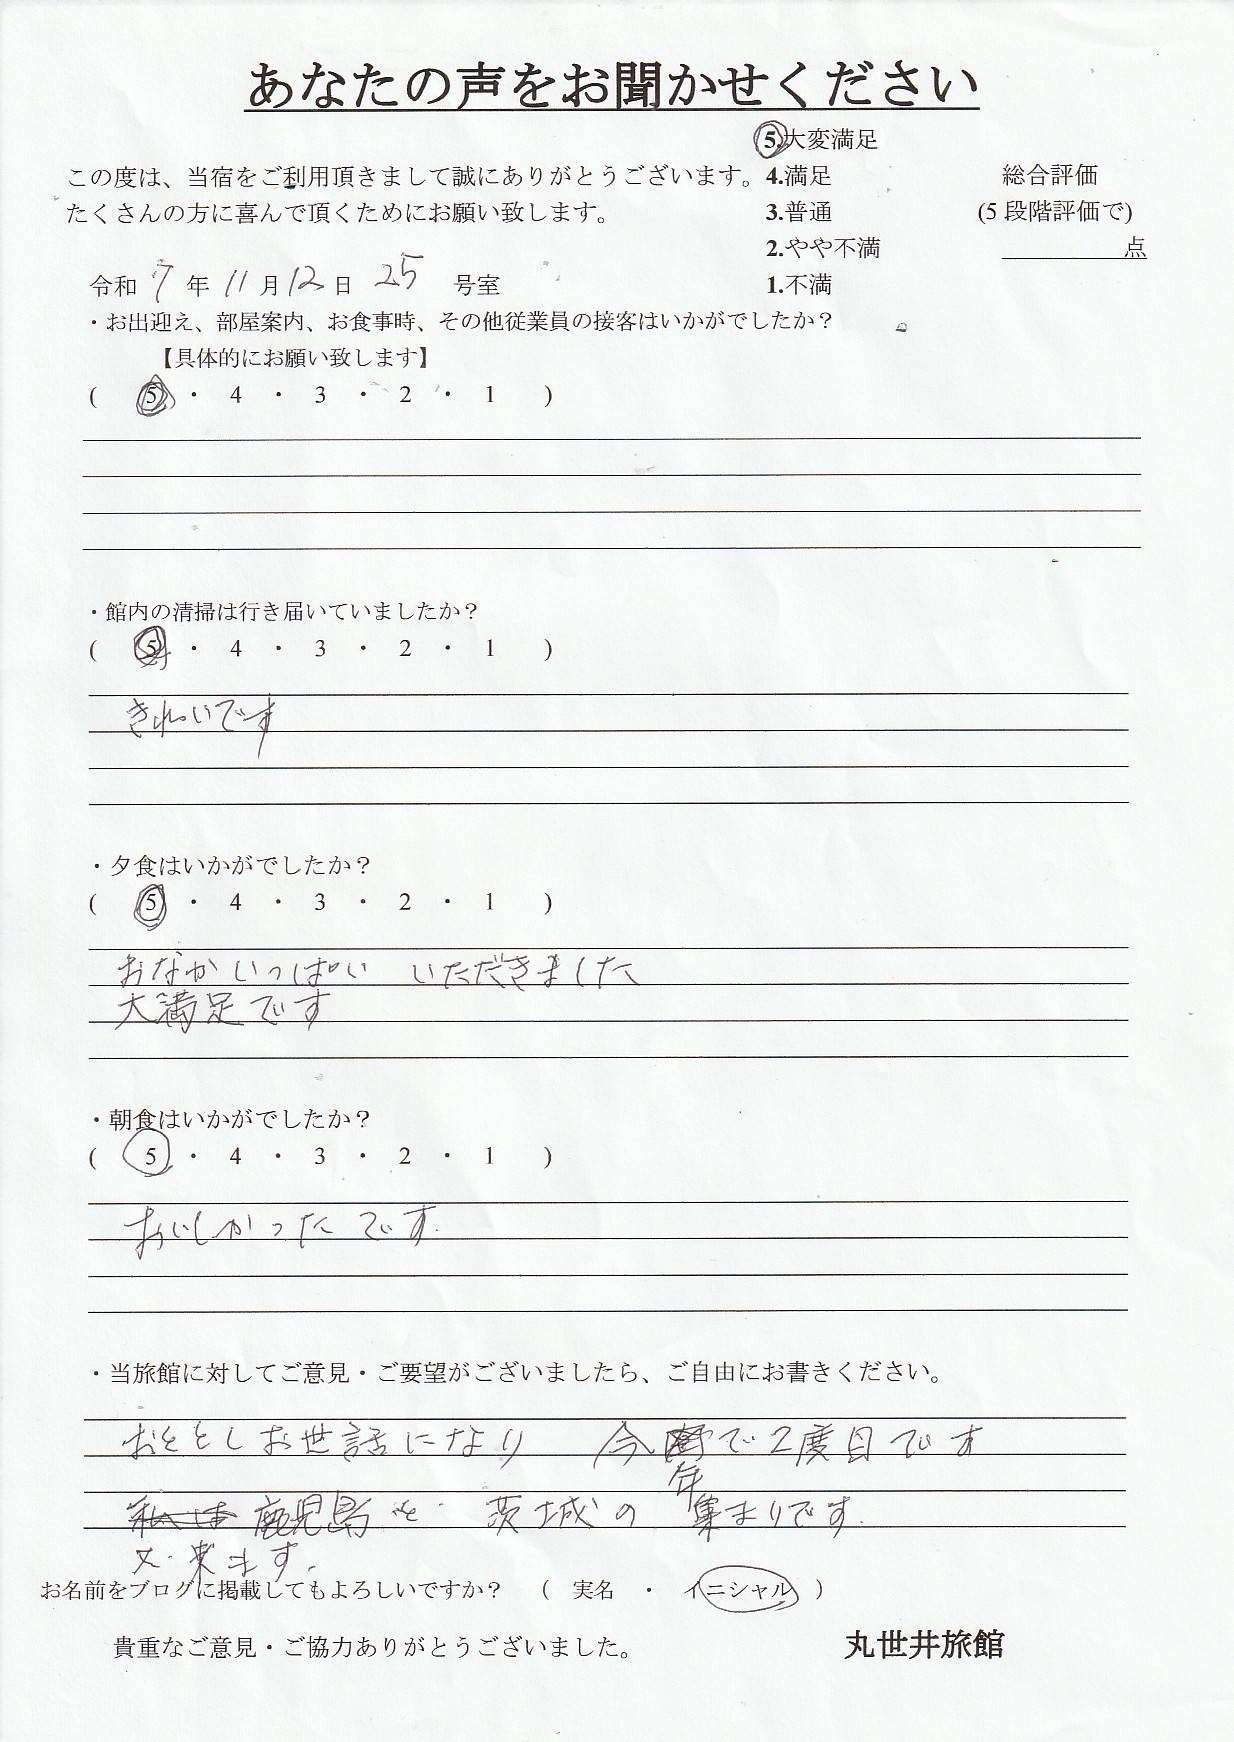 あなたの声をお聞かせください
5.大変満足
この度は、当宿をご利用頂きまして誠にありがとうございます。
4.満足
総合評価
たくさんの方に喜んで頂くためにお願い致します。
3.普通
(5段階評価で)
2.やや不満
点
令和 7 年 11 月 12 日 25 号室
1.不満
・お出迎え、部屋案内、お食事時、その他従業員の接客はいかがでしたか？
【具体的にお願い致します】
( 5 ・ 4 ・ 3 ・ 2 ・ 1 )
・館内の清掃は行き届いていましたか？
( 5 ・ 4 ・ 3 ・ 2 ・ 1 )
きれいです
・夕食はいかがでしたか？
( 5 ・ 4 ・ 3 ・ 2 ・ 1 )
おなかいっぱい いただきました
大満足です
・朝食はいかがでしたか？
( 5 ・ 4 ・ 3 ・ 2 ・ 1 )
おいしかったです.
・当旅館に対してご意見・ご要望がございましたら、ご自由にお書きください。
おととしお世話になり 今年で2度目です
私は 鹿児島と 茨城の 集まりです.
又.来ます.
お名前をブログに掲載してもよろしいですか？ ( 実名 ・ イニシャル )
貴重なご意見・ご協力ありがとうございました。
丸世井旅館